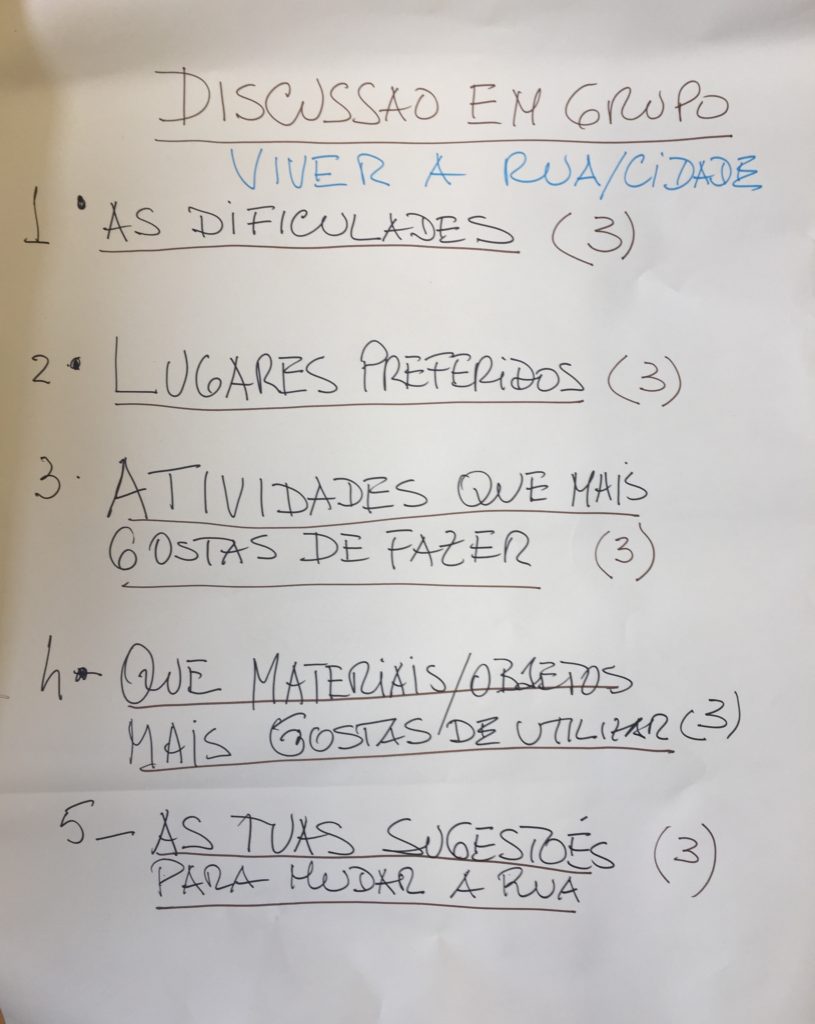 DISCUSSAO EM GRUPO
VIVER A RUA/CIDADE
1 • AS DIFICULADES (3)
2 • LUGARES PREFERIDOS (3)
3 · ATIVIDADES QUE MAIS
GOSTAS DE FAZER (3)
4 - QUE MATERIAIS/OBJETOS
MAIS GOSTAS DE UTILIZAR (3)
5 - AS TUAS SUGESTOÉS (3)
PARA MUDAR A RUA